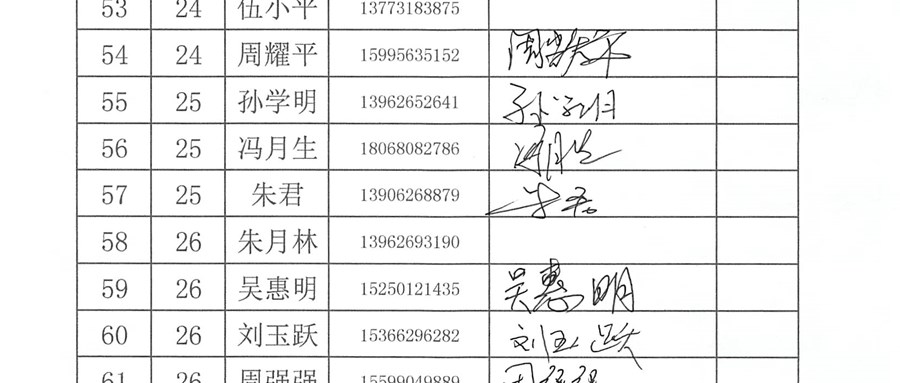 53 24 伍小平 13773183875
54 24 周耀平 15995635152 周耀平
55 25 孙学明 13962652641 孙学明
56 25 冯月生 18068082786 冯月生
57 25 朱君 13906268879 朱君
58 26 朱月林 13962693190
59 26 吴惠明 15250121435 吴惠明
60 26 刘玉跃 15366296282 刘玉跃
61 26 周强强 15599049889 周强强